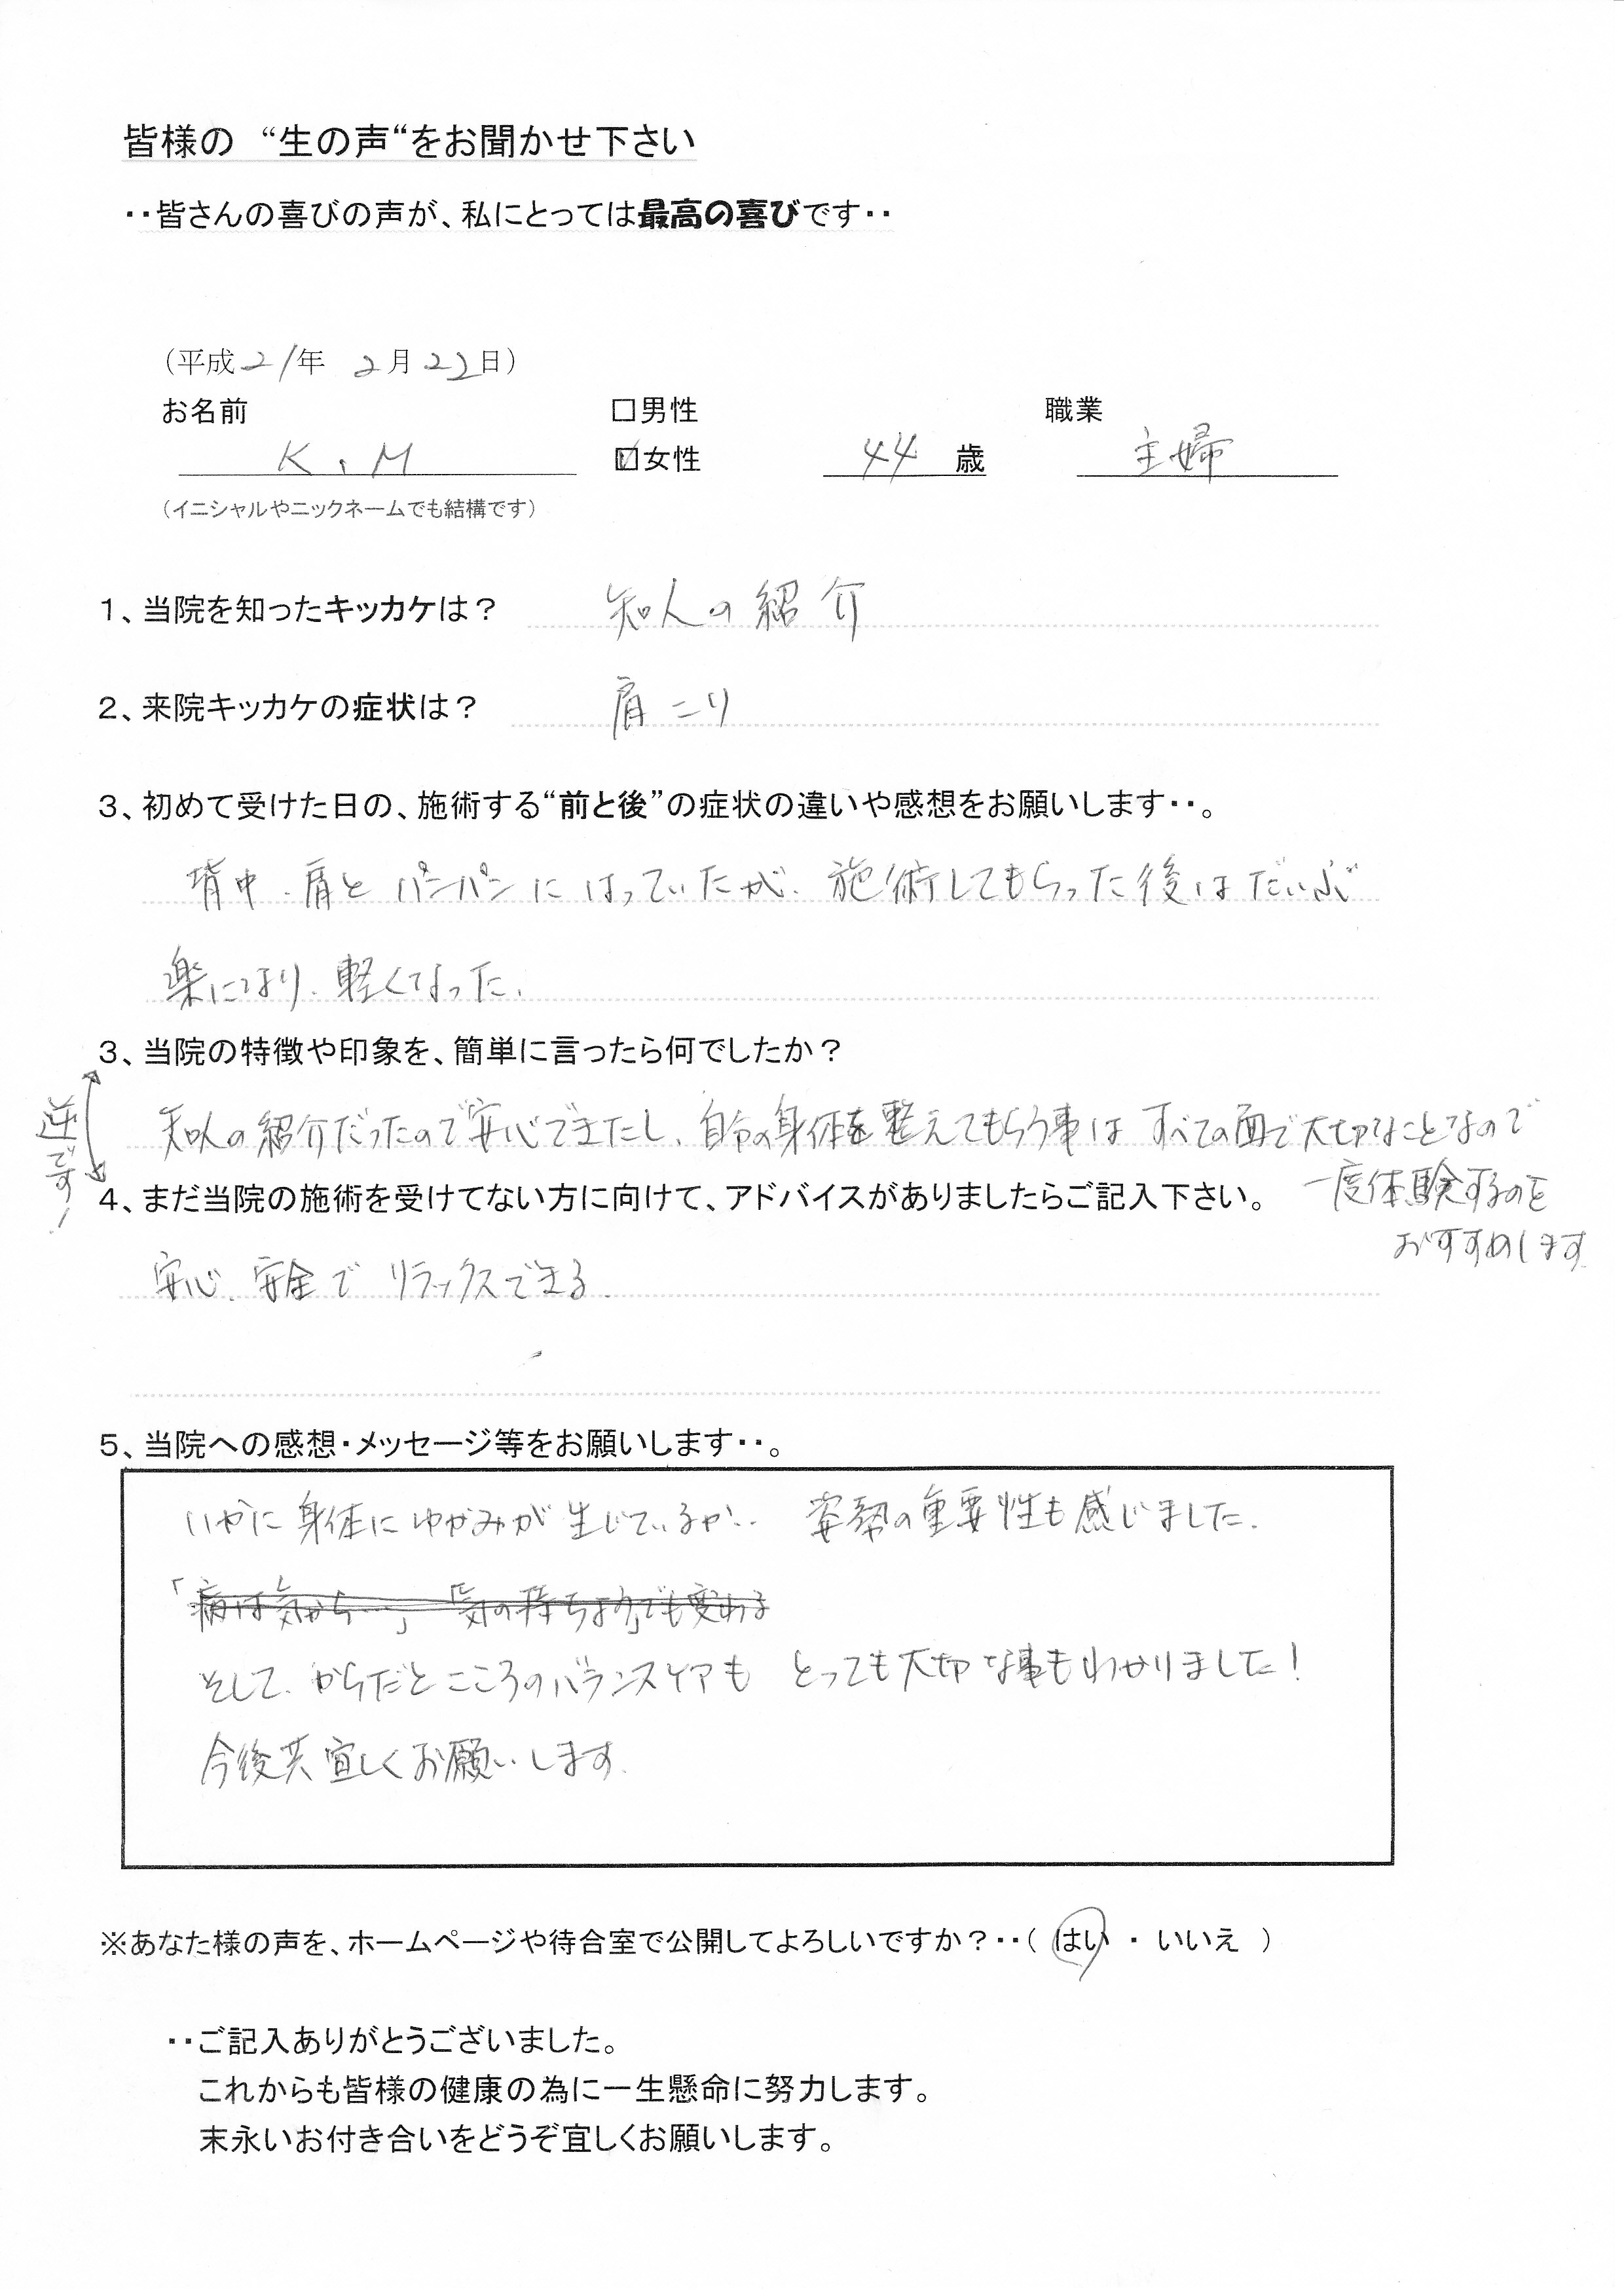 皆様の “生の声“をお聞かせ下さい
・・皆さんの喜びの声が、私にとっては最高の喜びです・・
（平成21年 2月22日）
お名前 □男性 職業
K.M ☑女性 44 歳 主婦
（イニシャルやニックネームでも結構です）
1、当院を知ったキッカケは？ 知人の紹介
2、来院キッカケの症状は？ 肩こり
3、初めて受けた日の、施術する“前と後”の症状の違いや感想をお願いします・・。
背中、肩と パンパンに はっていたが、施術してもらった後は だいぶ
楽になり、軽くなった。
3、当院の特徴や印象を、簡単に言ったら何でしたか？
逆です！
知人の紹介だったので安心できたし、自分の身体を整えてもらう事は すべての面で大切なことなので
一度体験するのを
おすすめします
4、まだ当院の施術を受けてない方に向けて、アドバイスがありましたらご記入下さい。
安心、安全で リラックスできる。
5、当院への感想・メッセージ等をお願いします・・。
いかに身体にゆがみが生じているか.. 姿勢の重要性も感じました。
「病は気から…」「気の持ちよう」でも変わる
そして、からだとこころのバランスケアも とっても大切な事もわかりました！
今後共宜しくお願いします。
※あなた様の声を、ホームページや待合室で公開してよろしいですか？・・（ はい ・ いいえ ）
・・ご記入ありがとうございました。
これからも皆様の健康の為に一生懸命に努力します。
末永いお付き合いをどうぞ宜しくお願いします。